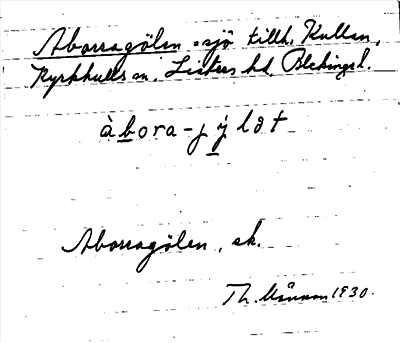 Aborragölen = sjö tillh. Kullan,
Kyrkhults sn. Listers hd, Blekinge l.
àbora-jýlǝt
Aborragölen, sk.
Th. Månsson 1930.